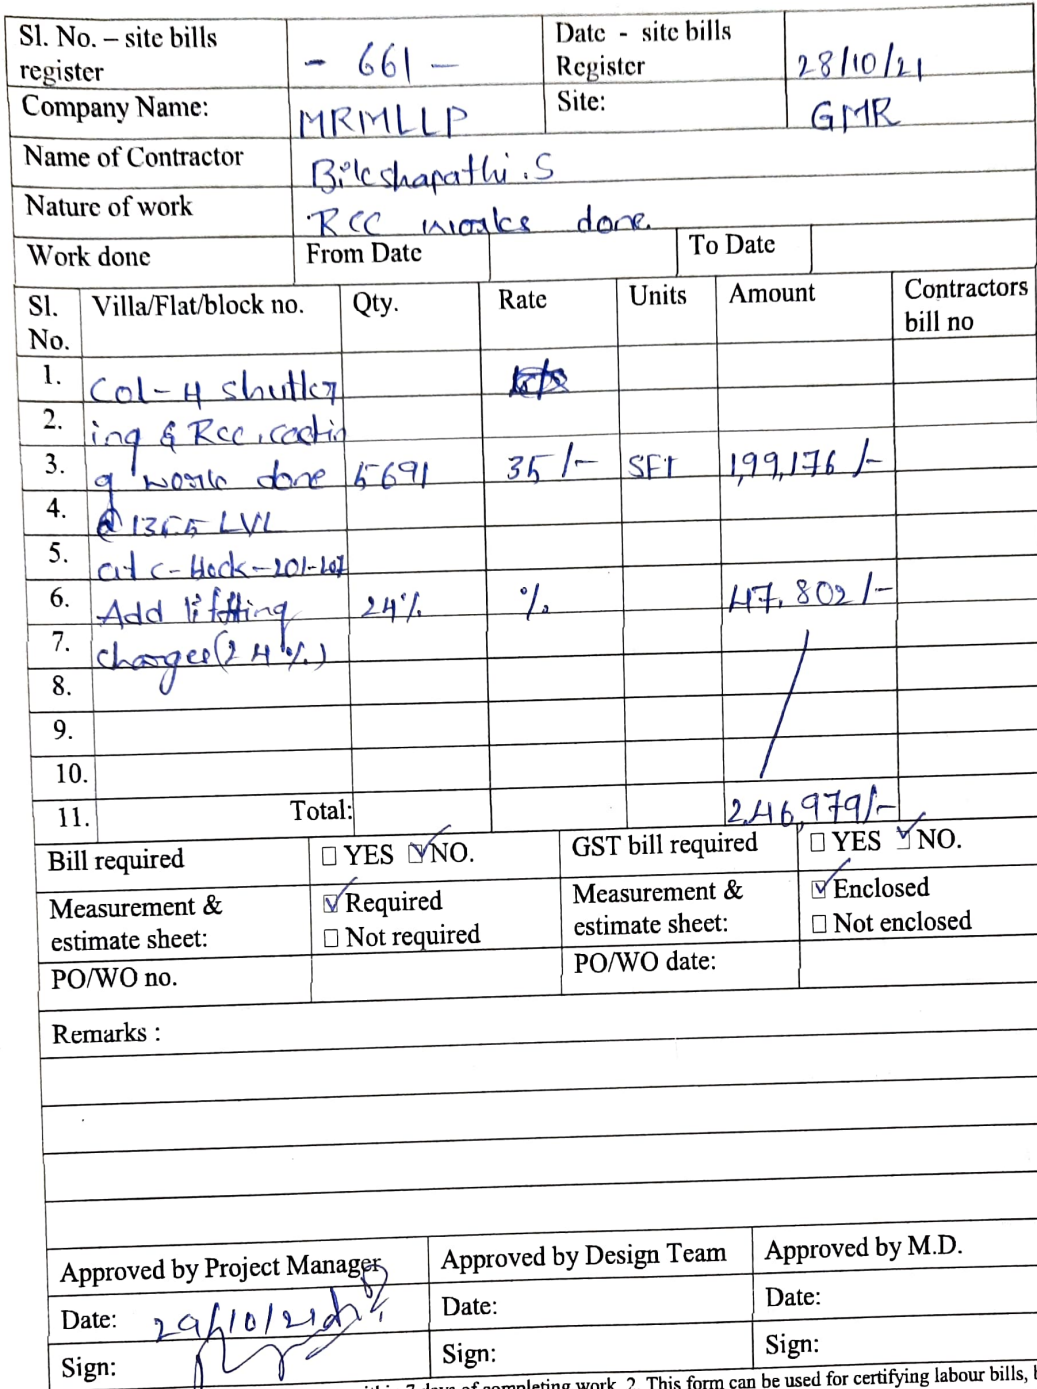 Sl. No. – site bills register - 661 - Date - site bills Register 28/10/21
Company Name: MRMLLP Site: GMR
Name of Contractor Bikshapathi.S
Nature of work RCC works done
Work done From Date To Date
Sl. No. Villa/Flat/block no. Qty. Rate Units Amount Contractors bill no
1. Col-4 shutter
2. ing & Rcc.castin
3. g work done 5691 35/- SFT 1,99,176/-
4. @ LVL
5. at c-block-201-207
6. Add lifting 24% % 47,802/-
7. charges(24%)
8.
9.
10.
11. Total: 2,46,979/-
Bill required □ YES ☑ NO. GST bill required □ YES ☑ NO.
Measurement & estimate sheet: ☑ Required □ Not required Measurement & estimate sheet: ☑ Enclosed □ Not enclosed
PO/WO no. PO/WO date:
Remarks :
Approved by Project Manager Approved by Design Team Approved by M.D.
Date: 29/10/21 Date: Date:
Sign: Sign: Sign:
7 days of completing work. 2. This form can be used for certifying labour bills,